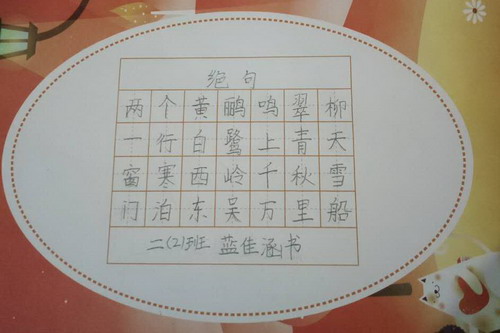 绝句
两个黄鹂鸣翠柳
一行白鹭上青天
窗寒西岭千秋雪
门泊东吴万里船
二(2)班 蓝佳涵书